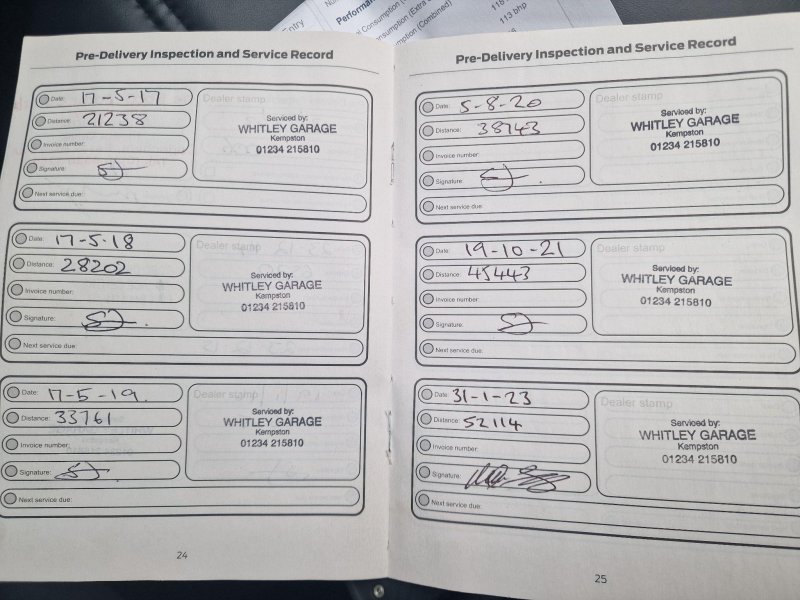 Performa
l Consumption (
Consumption (Extra
mption (Combined)
118
113 bhp
Entry
Pre-Delivery Inspection and Service Record
Date: 17-5-17
Distance: 21238
Invoice number:
Signature:
Next service due:
Dealer stamp
Serviced by:
WHITLEY GARAGE
Kempston
01234 215810
Date: 17-5-18
Distance: 28202
Invoice number:
Signature:
Next service due:
Dealer stamp
Serviced by:
WHITLEY GARAGE
Kempston
01234 215810
Date: 17-5-19.
Distance: 33761
Invoice number:
Signature:
Next service due:
Dealer stamp
Serviced by:
WHITLEY GARAGE
Kempston
01234 215810
24
Pre-Delivery Inspection and Service Record
Date: 5-8-20
Distance: 38743
Invoice number:
Signature:
Next service due:
Dealer stamp
Serviced by:
WHITLEY GARAGE
Kempston
01234 215810
Date: 19-10-21
Distance: 45443
Invoice number:
Signature:
Next service due:
Dealer stamp
Serviced by:
WHITLEY GARAGE
Kempston
01234 215810
Date: 31-1-23
Distance: 52114
Invoice number:
Signature:
Next service due:
Dealer stamp
Serviced by:
WHITLEY GARAGE
Kempston
01234 215810
25